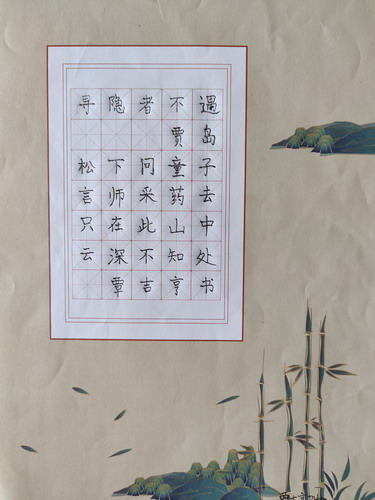 寻隐者不遇
贾岛
松下问童子
言师采药去
只在此山中
云深不知处
覃吉亨书